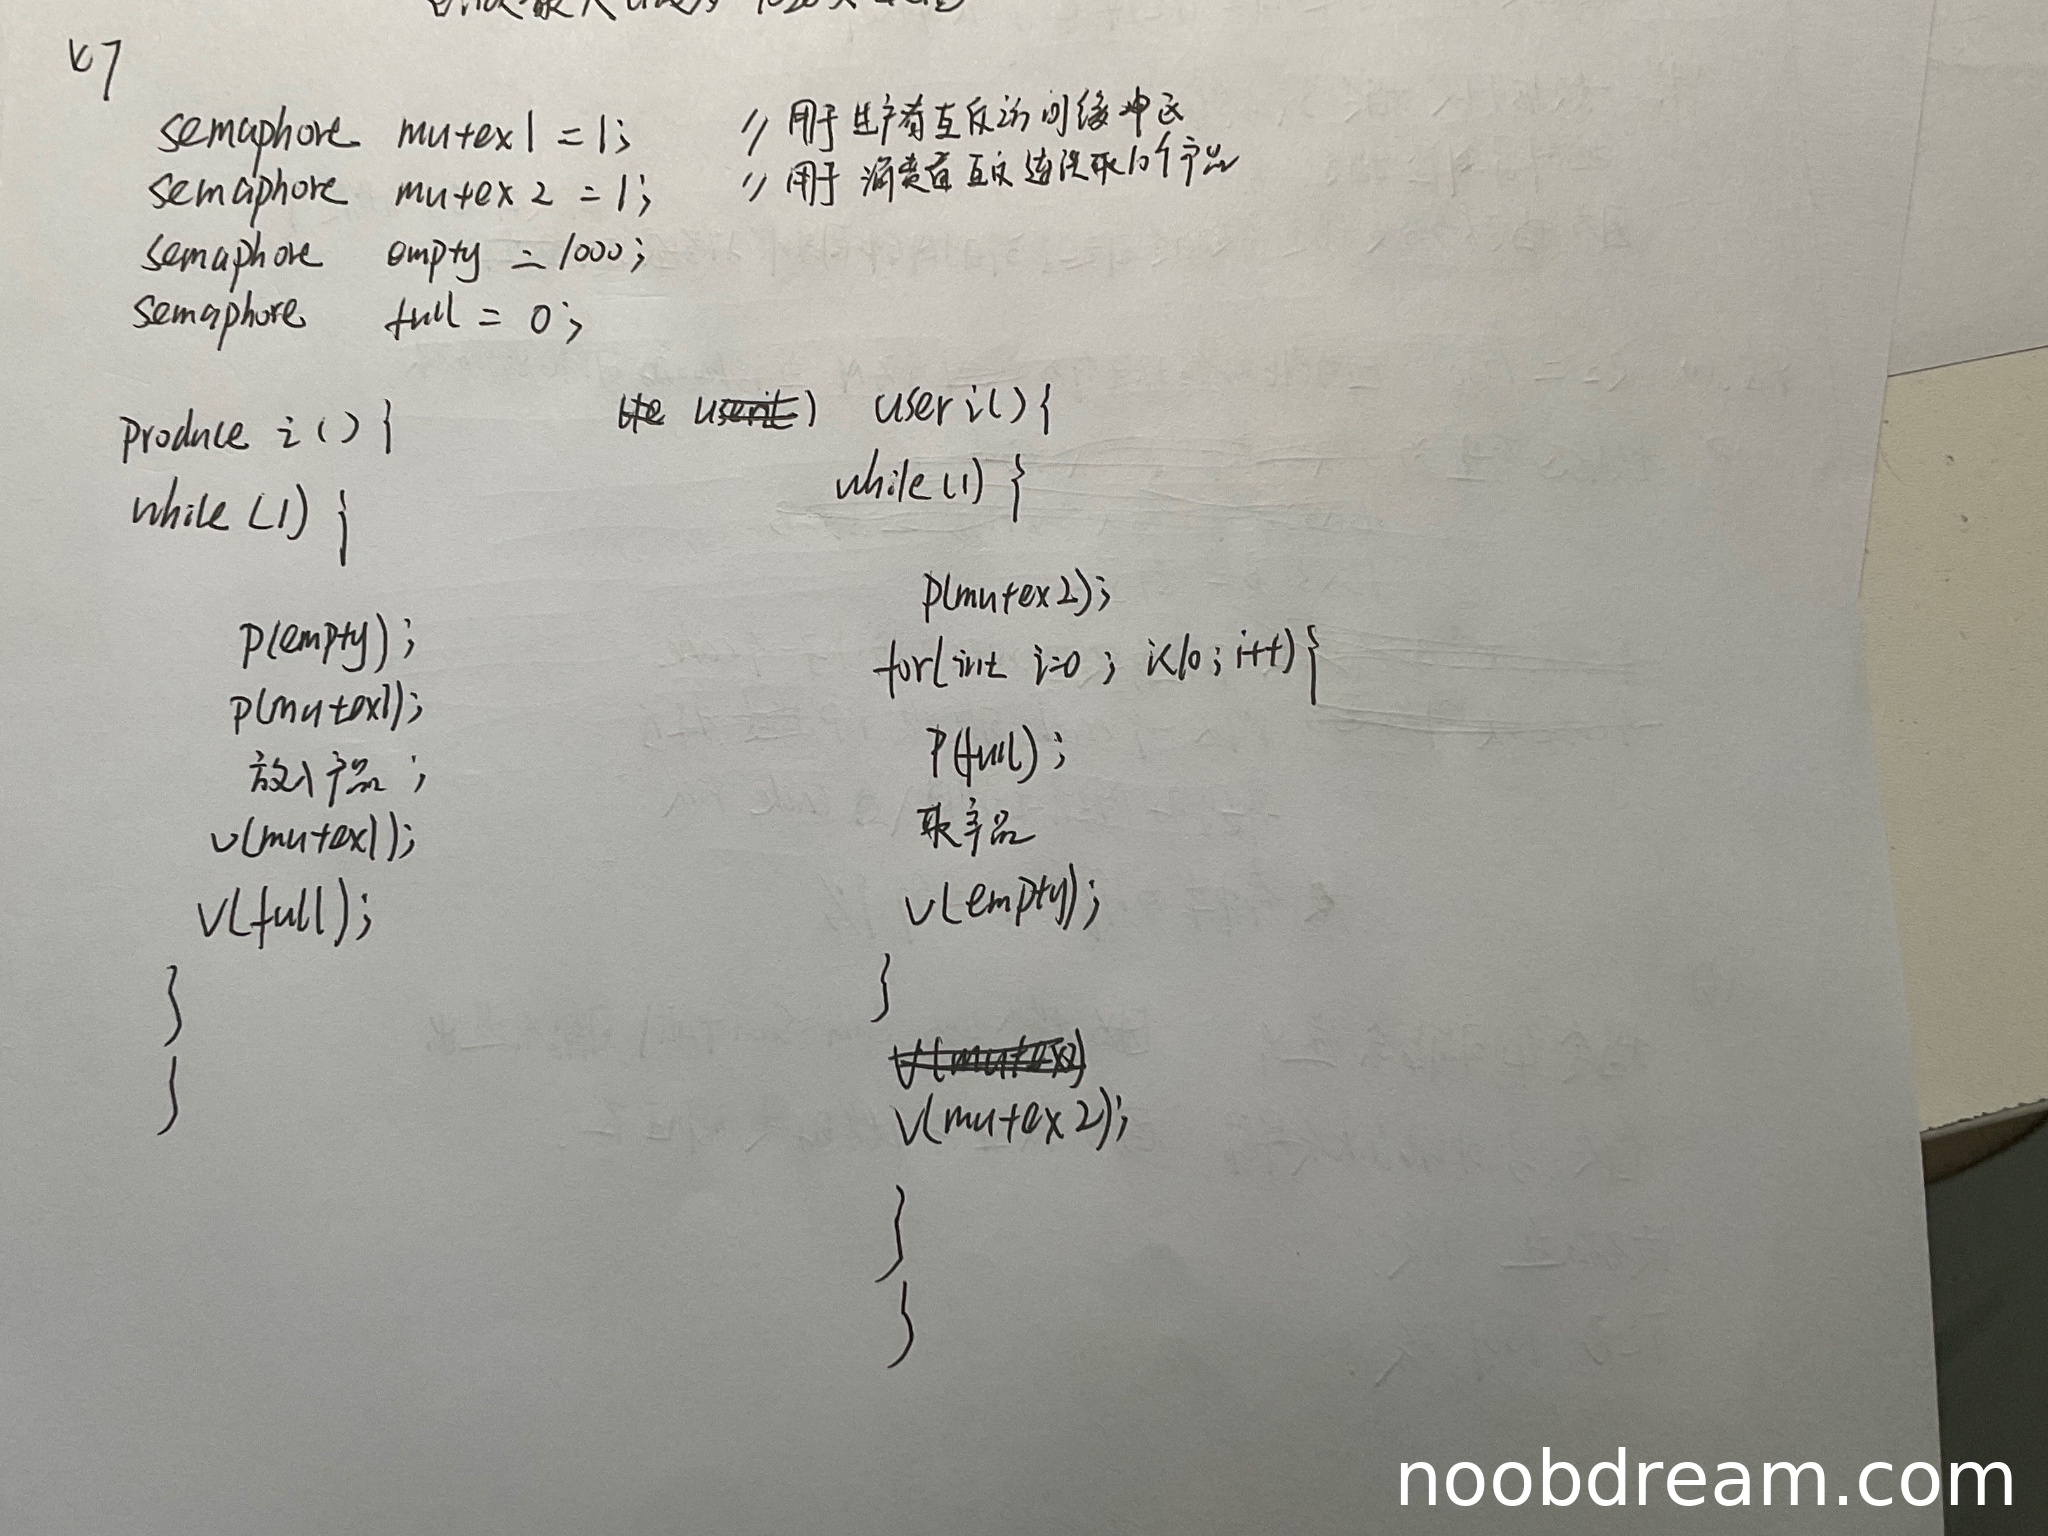 semaphore mutex1 = 1; // 用于生产者互斥访问缓冲区
semaphore mutex2 = 1; // 用于消费者互斥连续取10个产品
semaphore empty = 1000;
semaphore full = 0;
produce i() {
while (1) {
P(empty);
P(mutex1);
放入产品;
v(mutex1);
V(full);
}
}
user i() {
while (1) {
P(mutex2);
for(int i=0; i<10; i++) {
P(full);
取产品
v(empty);
}
V(mutex2);
}
}
noobdream.com